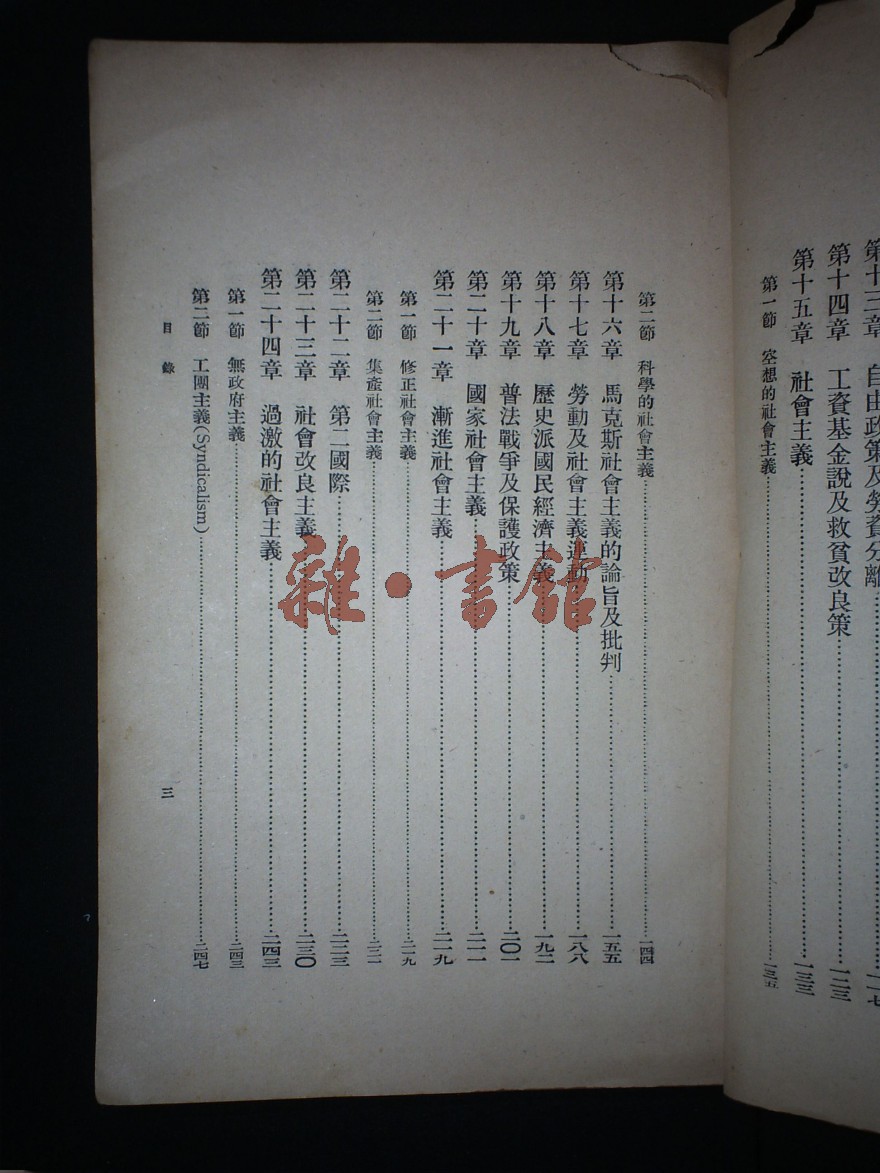 自由政策及勞資分離
第十四章　工資基金說及救貧改良策……一二三
第十五章　社會主義……一三三
第一節　空想的社會主義……一三五
第二節　科學的社會主義……一四四
第十六章　馬克斯社會主義的論旨及批判……一五五
第十七章　勞動及社會主義運動……一八八
第十八章　歷史派國民經濟主義……一九二
第十九章　普法戰爭及保護政策……二〇一
第二十章　國家社會主義……二一一
第二十一章　漸進社會主義……二一九
第一節　修正社會主義……二一九
第二節　集產社會主義……二二一
第二十二章　第二國際……二二三
第二十三章　社會改良主義……二三〇
第二十四章　過激的社會主義……二四三
第一節　無政府主義……二四三
第二節　工團主義(Syndicalism)……二四七
目錄
三
雜·書館